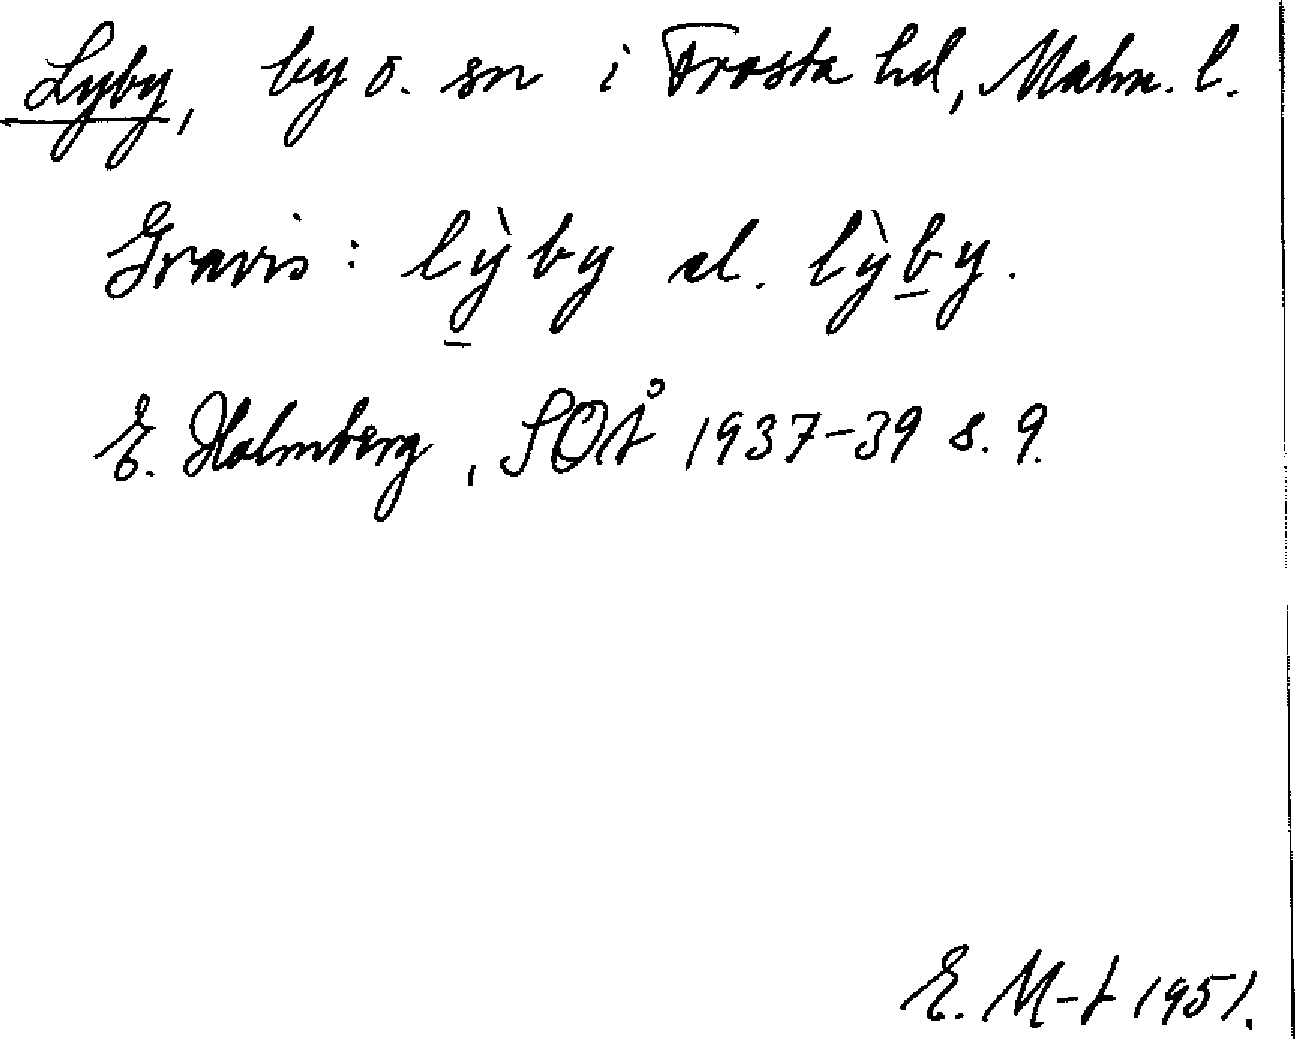 Lyby, by o. sn i Frosta hd, Malm. l.
Gravis: lỳ̠by el. lỳb̠y.
E. Holmberg, SOÅ 1937-39 s. 9.
E. M-t 1951.